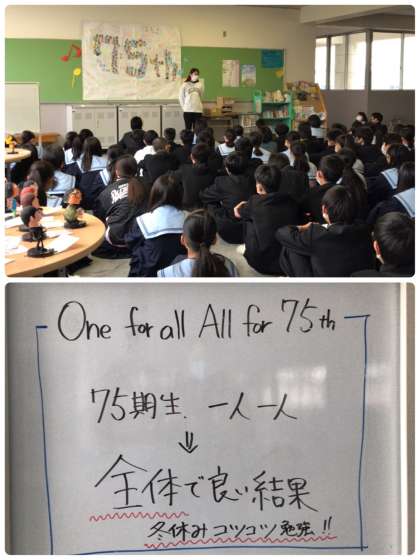 75th
One for all All for 75th
75期生、一人一人
⇓
全体で良い結果
冬休みコツコツ勉強!!